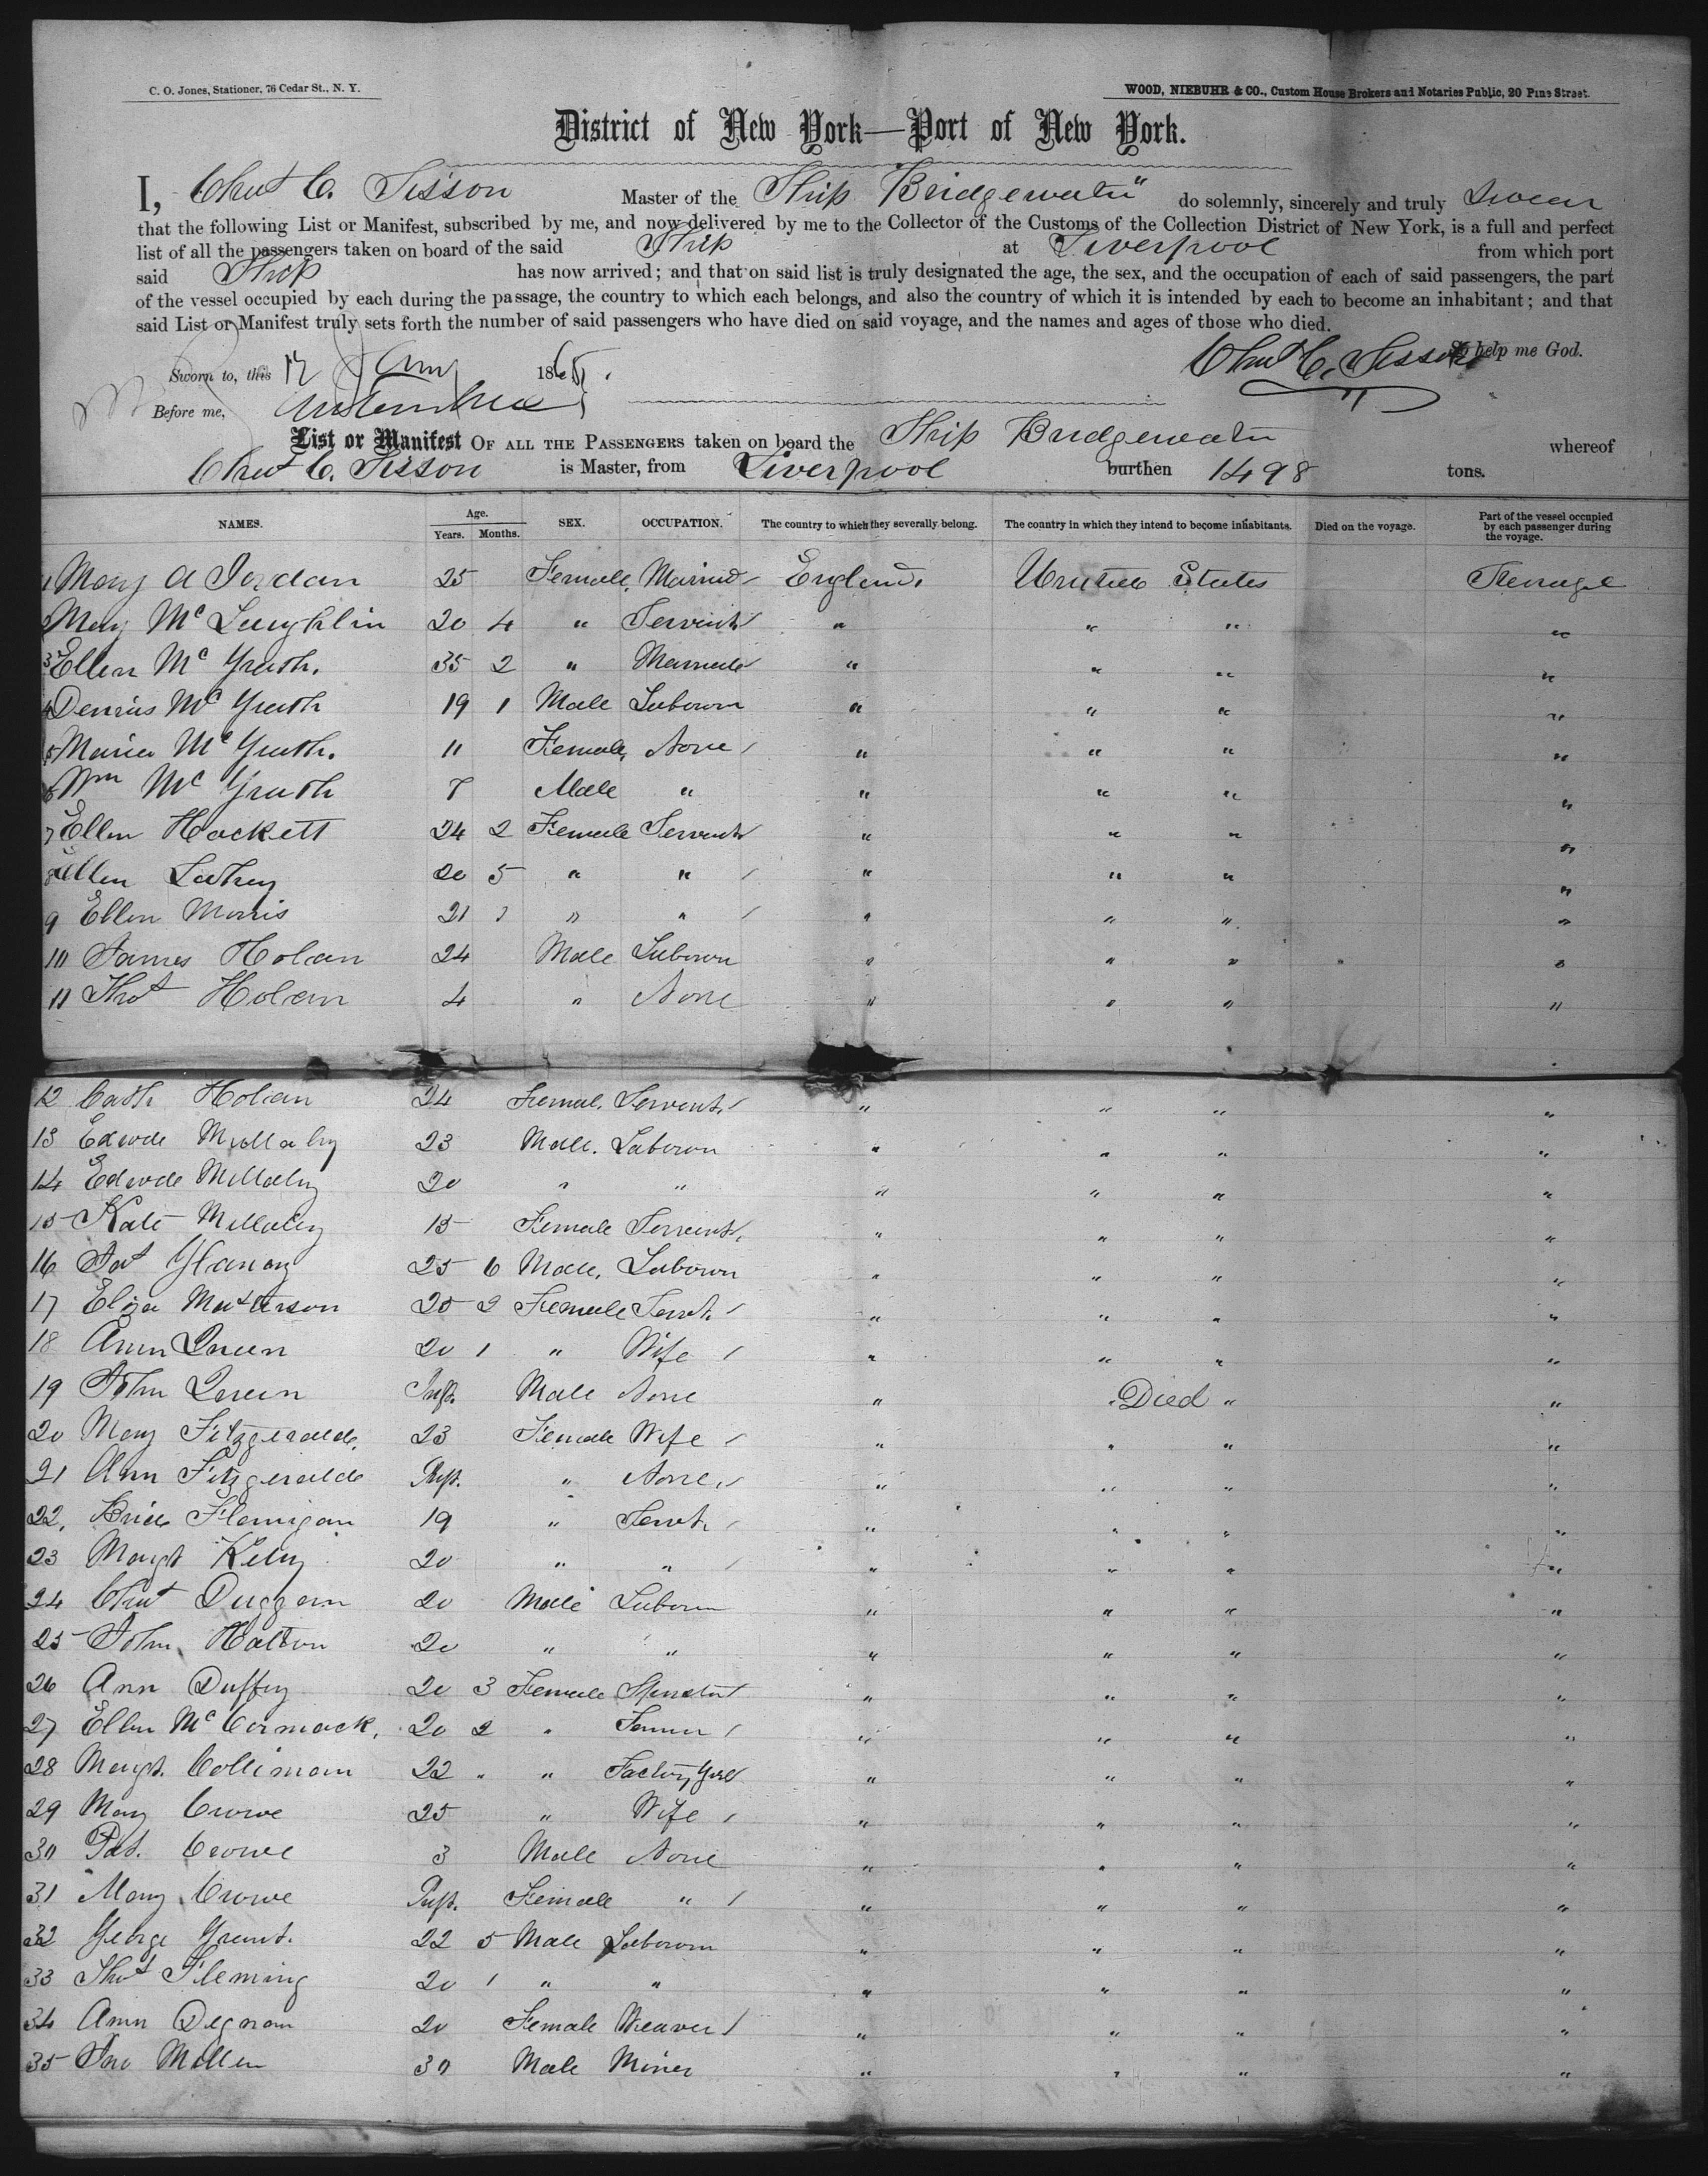 C. O. Jones, Stationer, 76 Cedar St., N. Y.
WOOD, NIEBUHR & CO., Custom House Brokers and Notaries Public, 20 Pine Street.
District of New York—Port of New York.
I, Chas C. Sisson Master of the Ship Bridgewater" do solemnly, sincerely and truly Swear
that the following List or Manifest, subscribed by me, and now delivered by me to the Collector of the Customs of the Collection District of New York, is a full and perfect
list of all the passengers taken on board of the said Ship at Liverpool from which port
said Ship has now arrived; and that on said list is truly designated the age, the sex, and the occupation of each of said passengers, the part
of the vessel occupied by each during the passage, the country to which each belongs, and also the country of which it is intended by each to become an inhabitant; and that
said List or Manifest truly sets forth the number of said passengers who have died on said voyage, and the names and ages of those who died.
So help me God.
Chas C. Sisson
Sworn to, this 12 Jany 1865.
Before me,
List or Manifest OF ALL THE PASSENGERS taken on board the Ship Bridgewater whereof
Chas C. Sisson is Master, from Liverpool burthen 1498 tons.
NAMES. Age. Years. Months. SEX. OCCUPATION. The country to which they severally belong. The country in which they intend to become inhabitants. Died on the voyage. Part of the vessel occupied by each passenger during the voyage.
1 Mary A Jordan 25 Female Married England United States Steerage
2 Mary McLaughlin 20 4 " Servant " " " "
3 Ellen McGrath. 35 2 " Married " " " "
4 Dennis McGrath 19 1 Male Laborer " " " "
5 Maria McGrath. 11 Female None " " " "
6 Wm McGrath 7 Male " " " " "
7 Ellen Hackett 24 2 Female Servant " " " "
8 Ellen 20 5 " " " " " "
9 Ellen Morris 21 1 " " " " " "
10 James Holan 24 Male Laborer " " " "
11 Thos Holan 4 " None " " " "
12 Cath Holan 24 Female Servant " " " "
13 Edwd Mullaly 23 Male Laborer " " " "
14 Edwd Mullaly 20 " " " " " "
15 Kate Mullaly 15 Female Servant " " " "
16 Pat 25 6 Male Laborer " " " "
17 Eliza Matterson 25 2 Female Servt. " " " "
18 Ann Queen 20 1 " Wife " " " "
19 John Queen Inft. Male None " Died " "
20 Mary Fitzgerald 23 Female Wife " " " "
21 Ann Fitzgerald Inft. " None " " " "
22. Flannigan 19 " Servt. " " " "
23 Margt Kelly 20 " " " " " "
24 Chas Duggan 20 Male Laborer " " " "
25 John Halton 20 " " " " " "
26 Ann Duffy 20 3 Female Spinster " " " "
27 Ellen McCormack, 20 2 " " " " "
28 Margt. Colliman 22 " " Factory Girl " " " "
29 Mary Crowe 25 " Wife " " " "
30 Pat. Crowe 3 Male None " " " "
31 Mary Crowe Inft. Female " " " " "
32 George Grant. 22 5 Male Laborer " " " "
33 Thos Fleming 20 1 " " " " " "
34 Ann Degnan 20 Female Weaver " " " "
35 Jno Millen 30 Male Miner " " " "